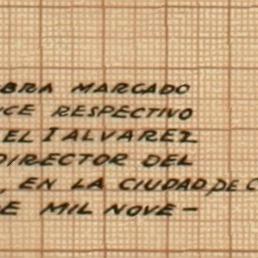 OBRA MARCADO
CE RESPECTIVO
EL I ALVAREZ
DIRECTOR DEL
, EN LA CIUDAD DE C
DE MIL NOVE-